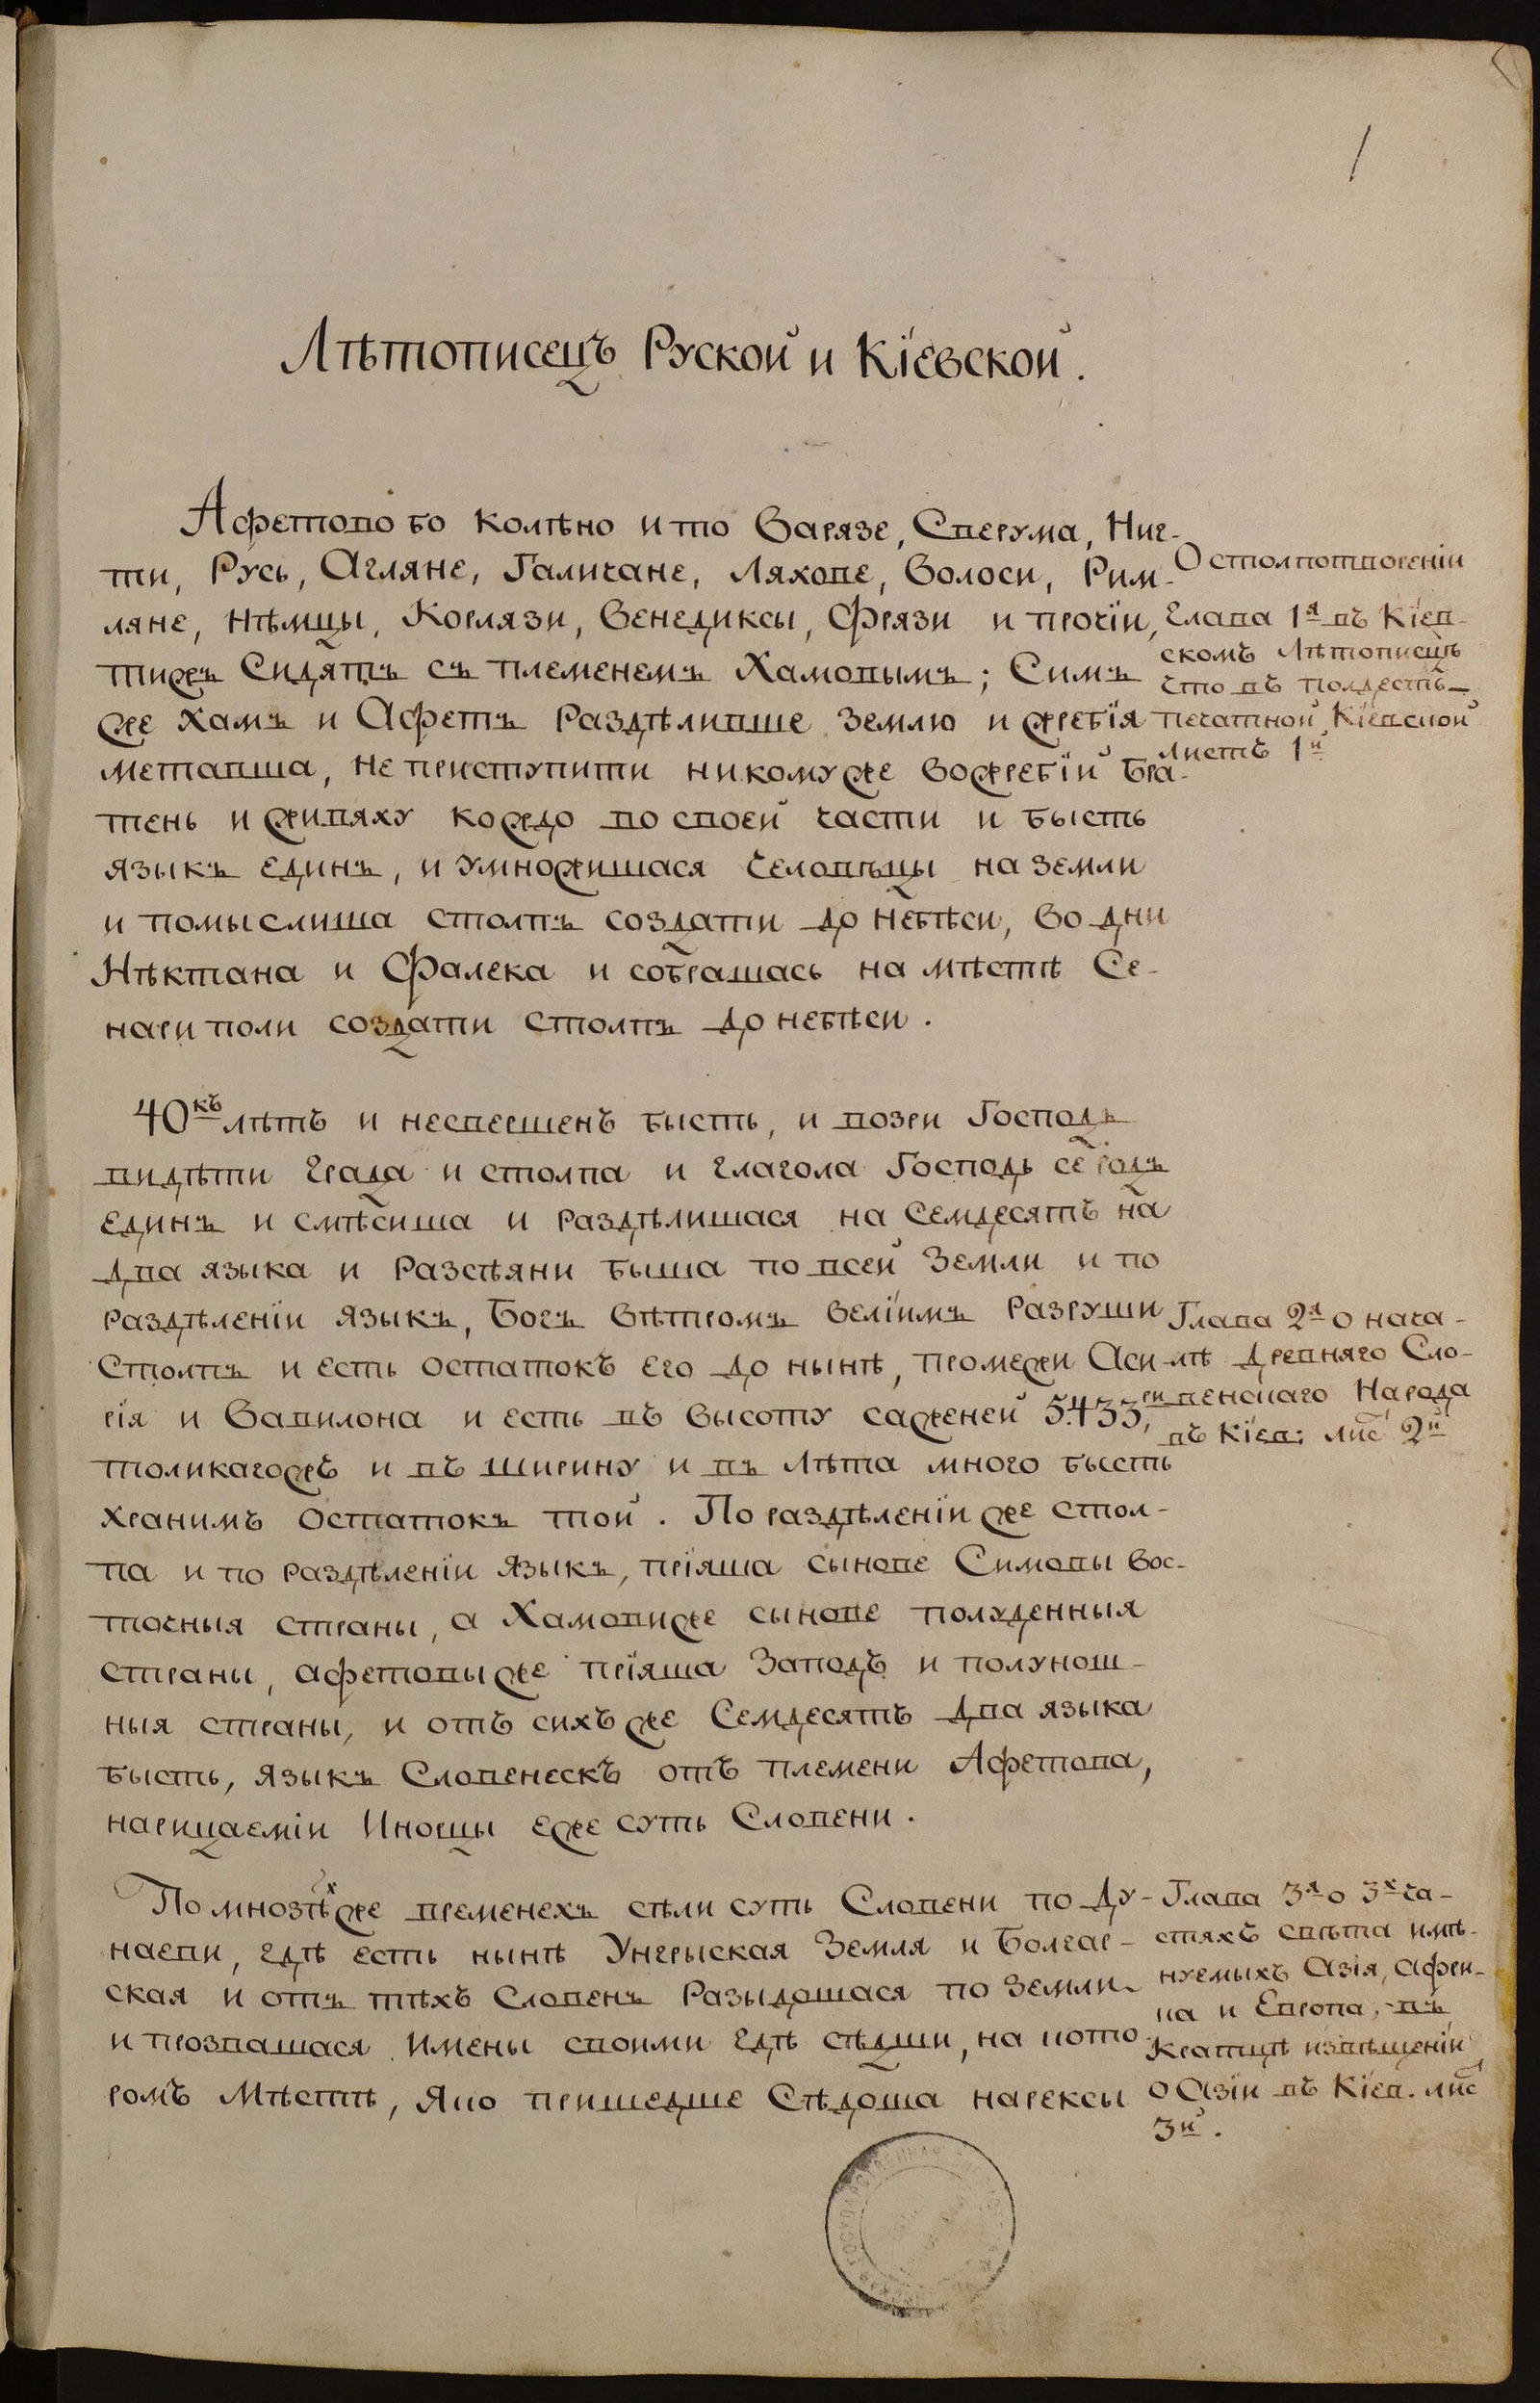 1
Лѣтописецъ Руской и Кіевской.
Афетово бо колѣно и то Варязе, Сверума, Ниг-
ти, Русь, Агляне, Галичане, Ляхове, Волоси, Рим-
ляне, Нѣмцы, Корлязи, Венедиксы, Фрязи и прочіи,
тижъ Сидятъ съ племенемъ Хамовымъ; Симъ
же Хамъ и Афетъ Раздѣливше Землю и жребія
метавша, не приступити никомуже Вожребіи Бра-
тень и живяху кождо во своей части и бысть
языкъ единъ, и умножишася человѣцы на Земли
и помыслиша столпъ создати до Небѣси, Во дни
Нѣктана и Фалека и собрашась на мѣстѣ Се-
нари поли создати столпъ до небѣси.
О столпотворении
глава 1я въ Кіев-
скомъ Лѣтописцѣ
что въ полдестъ
печатной Кіевской
листъ 1й
40къ лѣтъ и несвершенъ бысть, и возри Господь
видѣти града и столпа и глагола Господь се родъ
единъ и смѣсиша и раздѣлишася на Семдесятъ на
два языка и Разсѣяни быша по всей Земли и по
раздѣленіи языкъ, Богъ Вѣтромъ Веліимъ Разруши
Столпъ и есть остатокъ его до нынѣ, промежи Аси-
рія и Вавилона и есть въ Высоту саженей 5433ри,
толикагожъ и въ ширину и въ Лѣта много бысть
хранимъ Остатокъ той. По раздѣленіи же стол-
па и по раздѣленіи Языкъ, пріяша сынове Симовы Вос-
точныя страны, а Хамовиже сынове полуденныя
страны, афетовыже пріяша Заподъ и полунош-
ныя страны, и отъ сихъ же Семдесятъ два языка
бысть, Языкъ Словенескъ отъ племени Афетова,
нарицаеміи Инорцы еже суть Словени.
Глава 2я о нача-
лѣ древняго Сло-
венскаго Народа
въ Кіев: лис 2й
По мнозѣхже временехъ сѣли суть Словени по Ду-
наеви, гдѣ есть нынѣ Унгрыская Земля и Болгар-
ская и отъ тѣхъ Словенъ Разыдошася по Земли
и прозвашася Имены своими гдѣ сѣдши, на кото-
ромъ Мѣстѣ, Яко пришедше Сѣдоша нарексы
Глава 3я о 3х ча-
стяхъ свѣта имѣ-
нуемыхъ Азія, Афри-
ка и Европа, въ
Кратцѣ извѣщеніи
О Азіи въ Кіев. лис
3й.